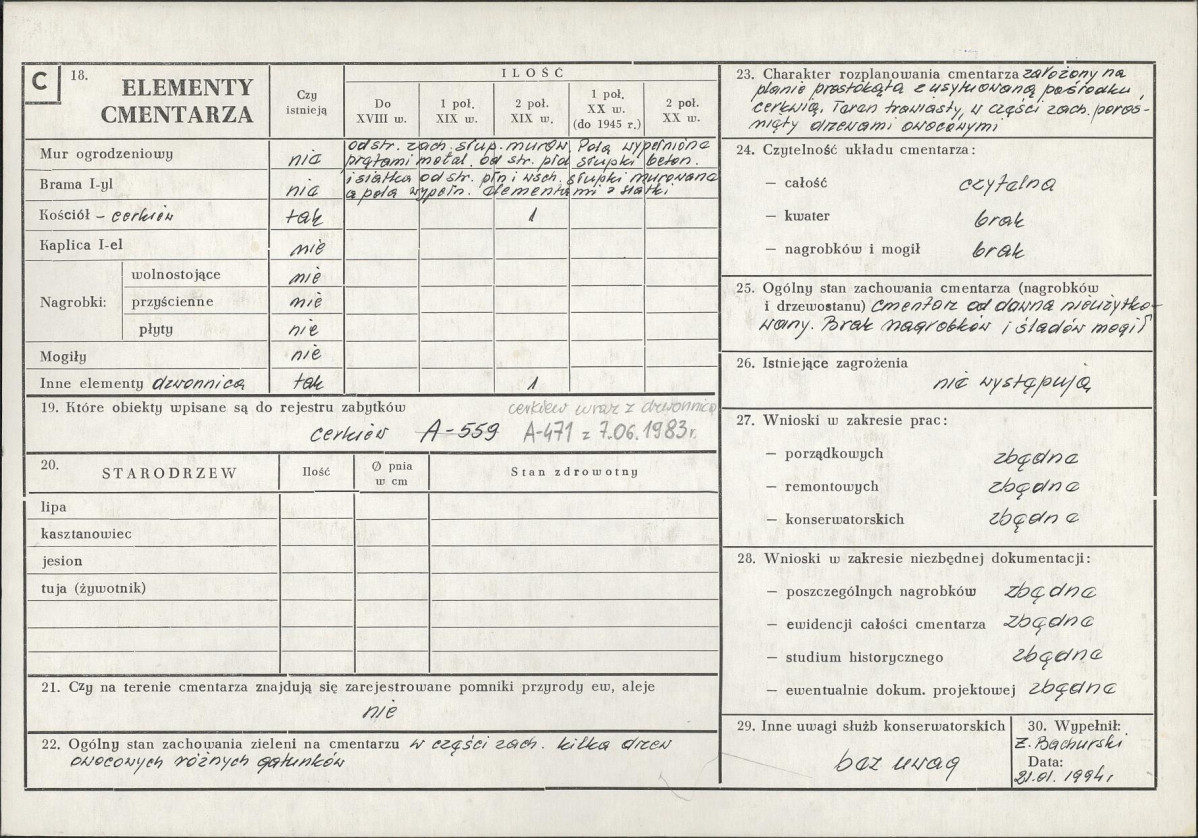 C
18.
ELEMENTY
CMENTARZA
Czy
istnieją
ILOŚĆ
Do
XVIII w.
1 poł.
XIX w.
2 poł.
XIX w.
1 poł.
XX w.
(do 1945 r.)
2 poł.
XX w.
Mur ogrodzeniowy nie
od str. zach. słup. murow. Pola wypełnione
prętami metal. od str. płd słupki beton.
Brama I-yl nie
i siatka od str. płn i wsch. słupki murowane
a pola wypełn. elementami z siatki
Kościół - cerkiew tak 1
Kaplica I-el nie
Nagrobki:
wolnostojące nie
przyścienne nie
płyty nie
Mogiły nie
Inne elementy dzwonnica tak 1
19. Które obiekty wpisane są do rejestru zabytków
cerkiew wraz z dzwonnicą
cerkiew A-559 A-471 z 7.06.1983r.
20.
STARODRZEW
Ilość
Ø pnia
w cm
Stan zdrowotny
lipa
kasztanowiec
jesion
tuja (żywotnik)
21. Czy na terenie cmentarza znajdują się zarejestrowane pomniki przyrody ew, aleje
nie
22. Ogólny stan zachowania zieleni na cmentarzu w części zach. kilka drzew
owocowych różnych gatunków
23. Charakter rozplanowania cmentarza założony na
planie prostokąta z usytuowaną pośrodku,
cerkwią. Teren trawiasty, w części zach. poroś-
nięty drzewami owocowymi
24. Czytelność układu cmentarza:
— całość czytelna
— kwater brak
— nagrobków i mogił brak
25. Ogólny stan zachowania cmentarza (nagrobków
i drzewostanu) cmentarz od dawna nieużytko-
wany. Brak nagrobków i śladów mogił
26. Istniejące zagrożenia
nie występują
27. Wnioski w zakresie prac:
— porządkowych zbędne
— remontowych zbędne
— konserwatorskich zbędne
28. Wnioski w zakresie niezbędnej dokumentacji:
— poszczególnych nagrobków zbędne
— ewidencji całości cmentarza zbędne
— studium historycznego zbędne
— ewentualnie dokum. projektowej zbędne
29. Inne uwagi służb konserwatorskich
bez uwag
30. Wypełnił:
Z. Bachurski
Data:
21.01.1994r